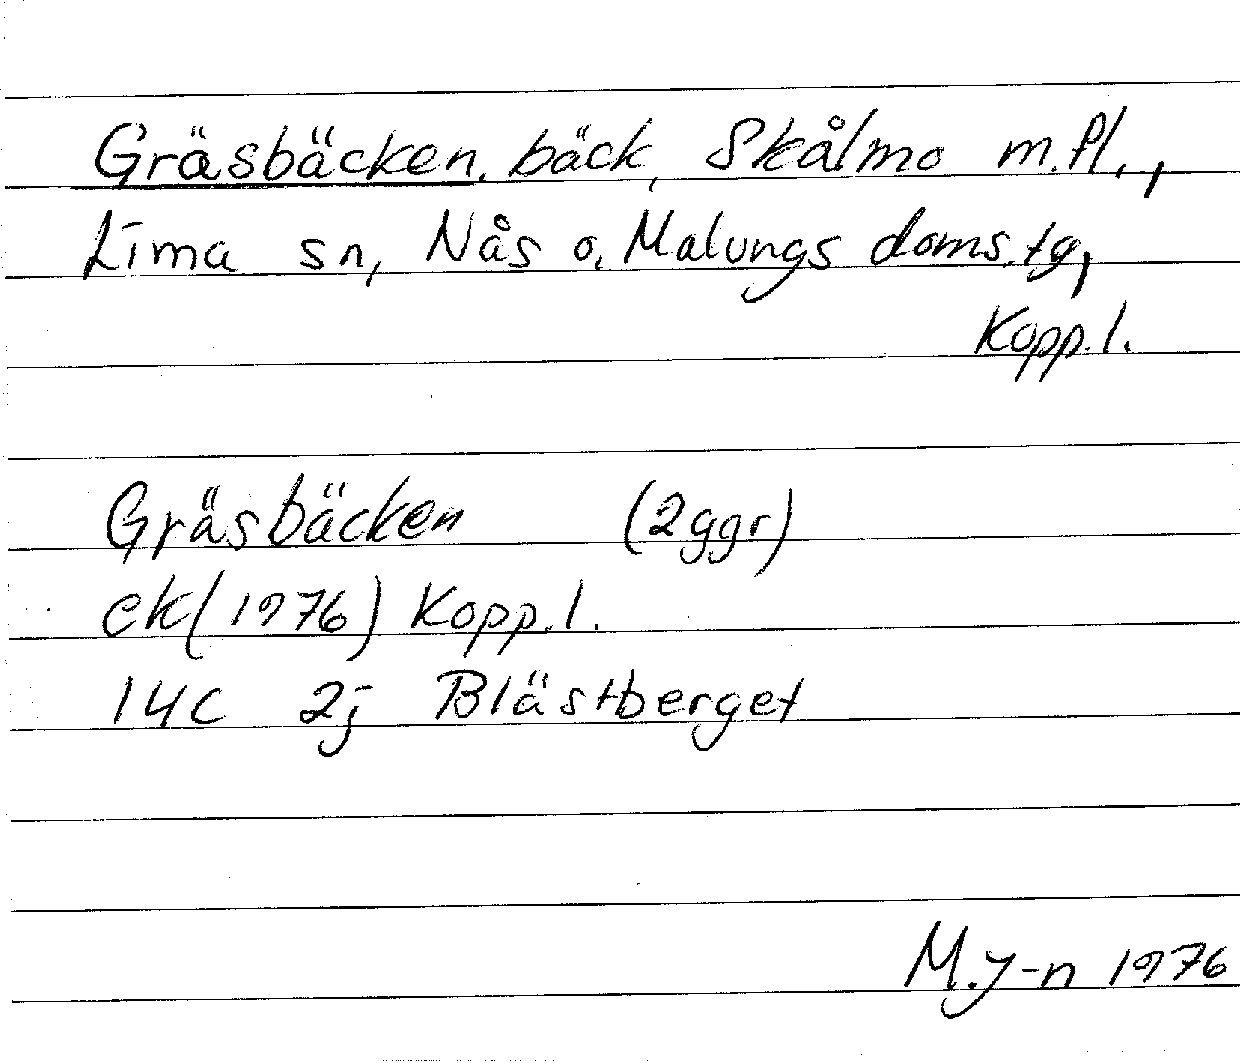 Gräsbäcken, bäck, Skålmo m.fl.,
Lima sn, Nås o. Malungs doms.tg,
Kopp.l.
Gräsbäcken (2ggr)
ek(1976) Kopp.l.
14C 2j Blästberget
M.J-n 1976